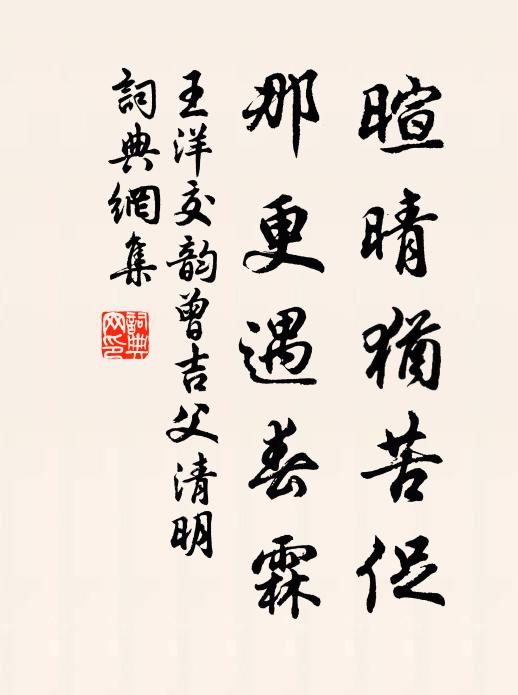 暄晴猶苦促
那更遇春霖
王洋交韵曾吉父清明
詞典網集
詞典網印